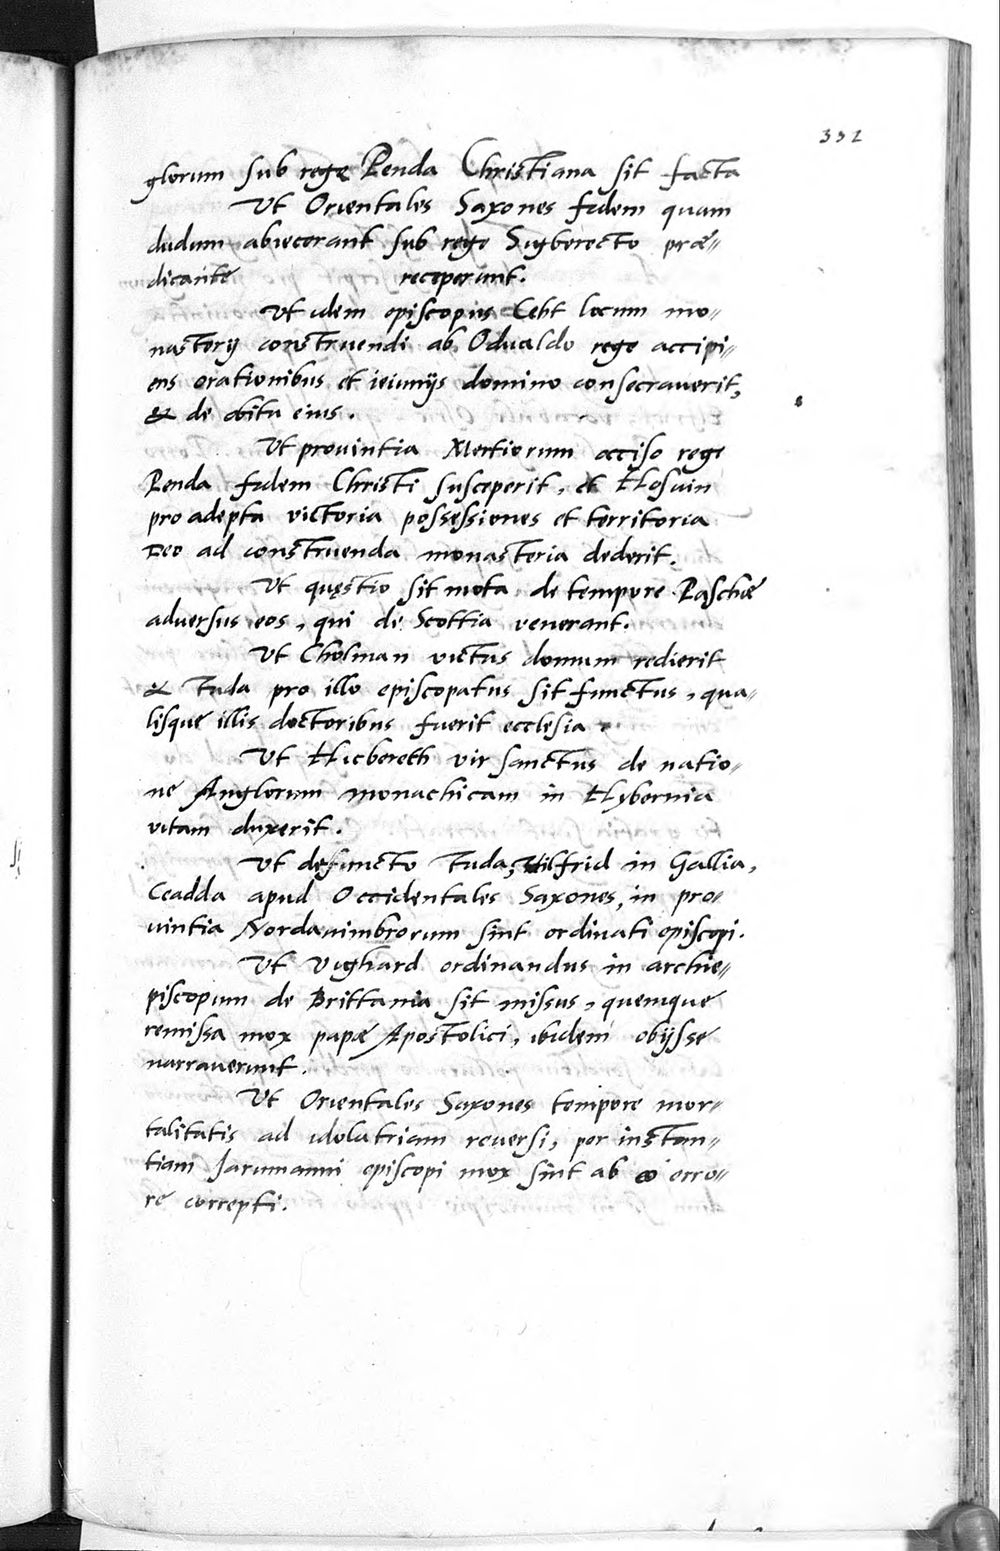 332
glorum sub rege Penda Christiana sit facta
Ut Orientales Saxones fidem quam
dudum abiecerant sub rege Sigberecto præ-
dicante receperunt.
Ut idem episcopus Cebt locum mo-
nasterij construendi ab Odualdo rege accipi-
ens orationibus et ieiunijs domino consecraverit,
& de obitu eius.
Ut provintia Mertiorum occiso rege
Penda fidem Christi susceperit, et Hosuin
pro adepta victoria possessiones et territoria
Deo ad construenda monasteria dederit.
Ut quęstio sit mota de tempore Paschæ
adversus eos, qui de Scottia venerant.
Ut Cholman victus domum redierit
& Tuda pro illo episcopatus sit functus, qua-
lisque illis doctoribus fuerit ecclesia.
Ut Hicbereth vir sanctus de natio-
ne Anglorum monachicam in Hybernia
vitam duxerit.
Ut defuncto Tuda, Uilfrid in Gallia,
Ceadda apud Occidentales Saxones, in pro-
uintia Nordanimbrorum sint ordinati episcopi.
Ut Vighard ordinandus in archie-
piscopum de Brittania sit missus, quemque
remissa mox papæ Apostolici, ibidem obijsse
narraverunt.
Ut Orientales Saxones tempore mor-
talitatis ad idolatriam reversi, per instan-
tiam Jarumanni episcopi mox sint ab eo erro-
re correpti.